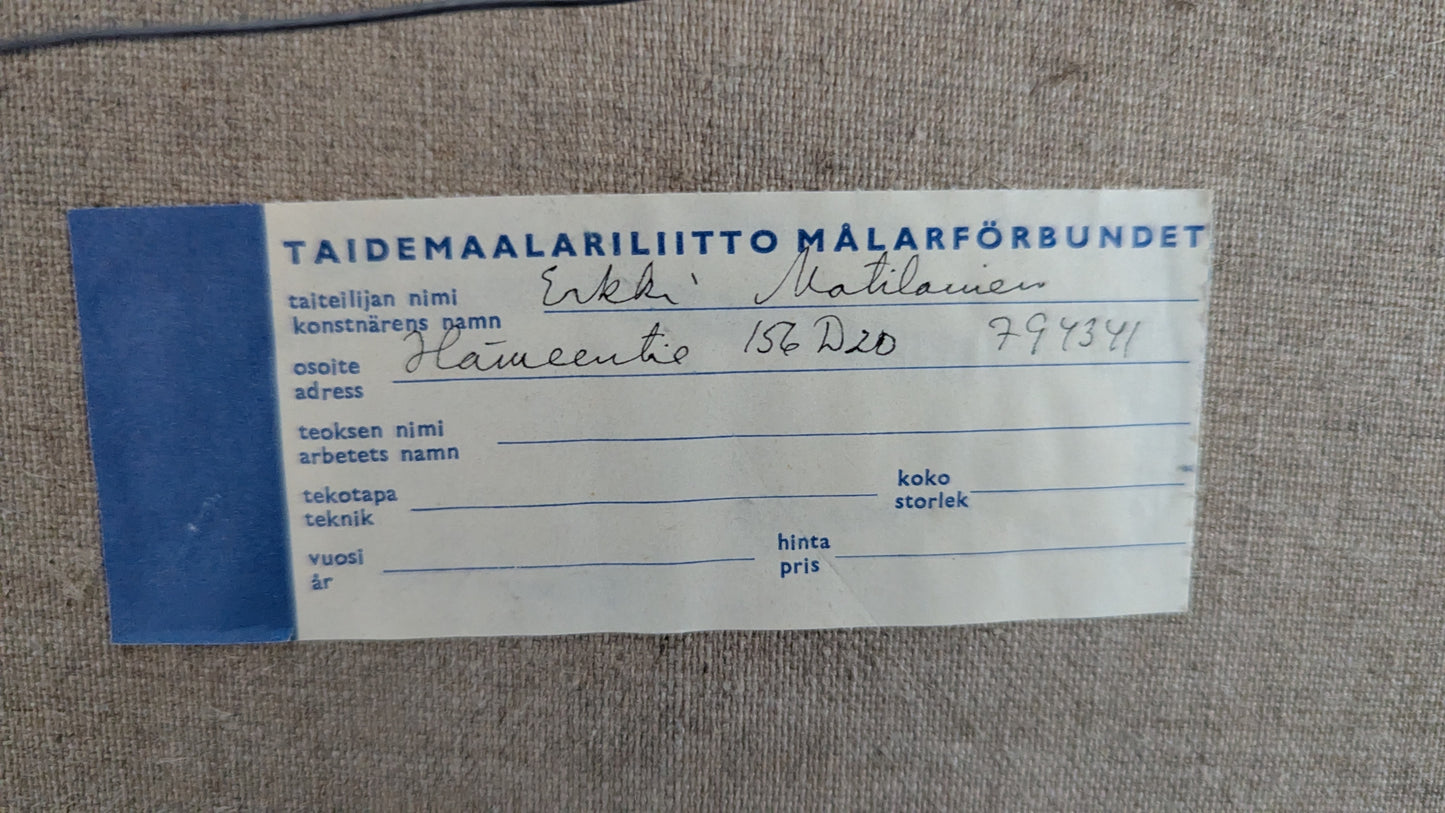 TAIDEMAALARILIITTO MÅLARFÖRBUNDET
taiteilijan nimi Erkki Matilainen
konstnärens namn
osoite Hämeentie 156 D20 794341
adress
teoksen nimi
arbetets namn
tekotapa koko
teknik storlek
vuosi hinta
år pris